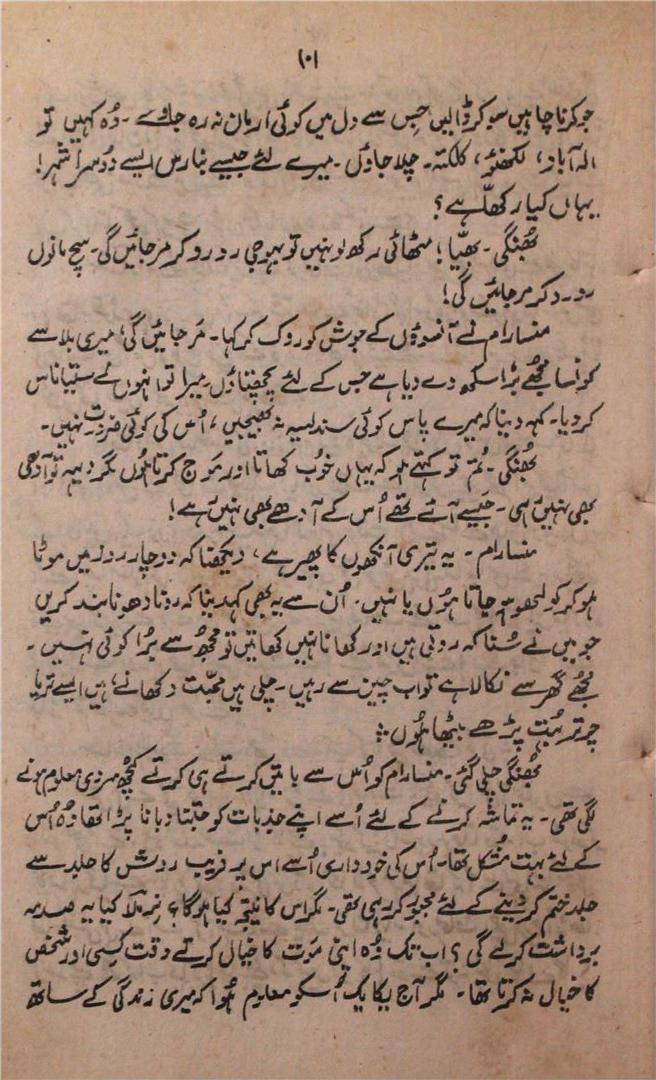 ۱۰۱
جو کرنا چاہیں سو کر ڈالیں جس سے دل میں کوئی ارمان نہ رہ جاوے ۔ وُہ کہیں تو
الہ آباد، لکھنؤ، کلکتہ ۔ چلا جاؤں ۔ میرے لئے جیسے بنارس ایسے دُوسرا شہر!
یہاں کیا رکھلّے ہے؟
بھُنگی ۔ بھیّا! مٹھائی رکھ لو نہیں تو بہوجی رو رو کر مر جائیں گی ۔ سچ مانوں
رو رو کر مر جائیں گی!
منسارام نے آنسوؤں کے جوش کو روک کر کہا ۔ مَر جائیں گی، میری بلا سے
کونسا مجھے بڑا سکھ دے دیا ہے جس کے لئے پچھتاؤں ۔ میرا تو انہوں نے ستیاناس
کر دیا ۔ کہہ دینا کہ میرے پاس کوئی سندیسہ نہ بھیجیں، اُس کی کوئی ضرورت نہیں ۔
بھُنگی ۔ تُم تو کہتے ہو کہ یہاں خُوب کھاتا اور مَوج کرتا ہُوں مگر دیہہ تو آدھی
بھی نہیں رہی ۔ جَیسے آئے تھے اُس کے آدھے بھی نہیں ہے!
منسارام ۔ یہ تیری آنکھوں کا پھیر ہے، دیکھنا کہ دو چار روز میں موٹا
ہو کر کولھو ہو جاتا ہُوں یا نہیں ۔ اُن سے یہ بھی کہدینا کہ رونا دھونا بند کریں
جو میں نے سُنا کہ روتی ہیں اور کھانا نہیں کھاتیں تو مجھ سے بُرا کوئی نہیں ۔
مجھے گھر سے نکالا ہے تو اب چین سے رہیں ۔ چلی ہیں محبّت دکھانے، میں ایسے تریا
چرتر بہُت پڑھے بیٹھا ہُوں ؞
بھُنگی چلی گئی ۔ منسارام کو اُس سے باتیں کرتے ہی کرتے کچھ سردی معلوم ہونے
لگی تھی ۔ یہ تماشہ کرنے کے لئے اُسے اپنے جذبات کو جتنا دبانا پڑا تھا وُہ اُس
کے لئے بہت مُشکل تھا ۔ اُس کی خودداری اُسے اس پُر فریب روش کا جلد سے
جلد ختم کر دینے کے لئے مجبور کر رہی تھی ۔ مگر اس کا نتیجہ کیا ہوگا؟ نِرملا کیا یہ صدمہ
برداشت کر لے گی؟ اب تک وُہ اپنی مَوت کا خیال کرتے وقت کسی اور شخص
کا خیال نہ کرتا تھا ۔ مگر آج یکایک اُسکو معلوم ہُوا کہ میری زندگی کے ساتھ